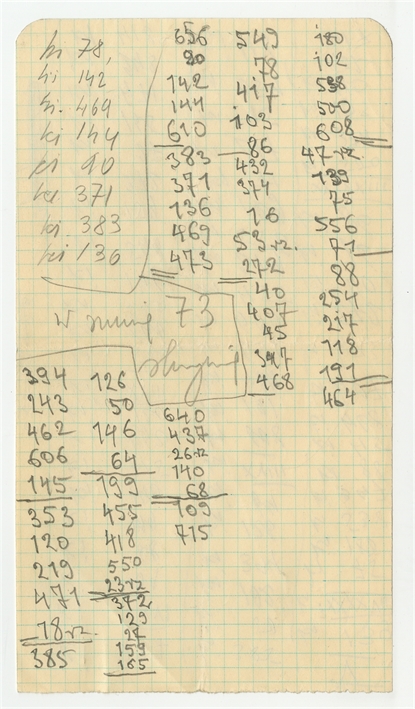 ki 78,
ki 142
ki. 469
ki 144
ki 90
ki 371
ki. 383
ki 136
656
90
142
144
610
383
371
136
469
473
549
78
417
103
86
432
374
16
53 r2.
272
40
407
45
347
468
180
102
538
500
608
47 r2.
139
75
556
71
88
254
217
118
191
464
w 73
394
243
462
606
145
353
120
219
471
18 r2.
385
126
50
146
64
199
455
418
550
23 r2
372
129
27
159
165
640
437
26 r2
140
68
109
715